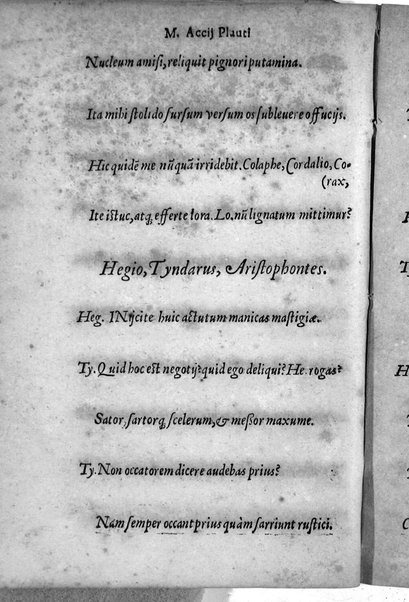 M. Accij Plauti
Nucleum amisi, reliquit pignori putamina.
Ita mihi stolido sursum versum os sublevere offucijs.
Hic quidē me nūquā irridebit. Colaphe, Cordalio, Co-
(rax,
Ite istuc, atq; efferte lora. Lo. nū lignatum mittimur?
Hegio, Tyndarus, Aristophontes.
Heg. INijcite huic actutum manicas mastigiæ.
Ty. Quid hoc est negotij? quid ego deliqui? He. rogas?
Sator, sartorq; scelerum, & messor maxume.
Ty. Non occatorem dicere audebas prius?
Nam semper occant prius quàm sarriunt rustici.